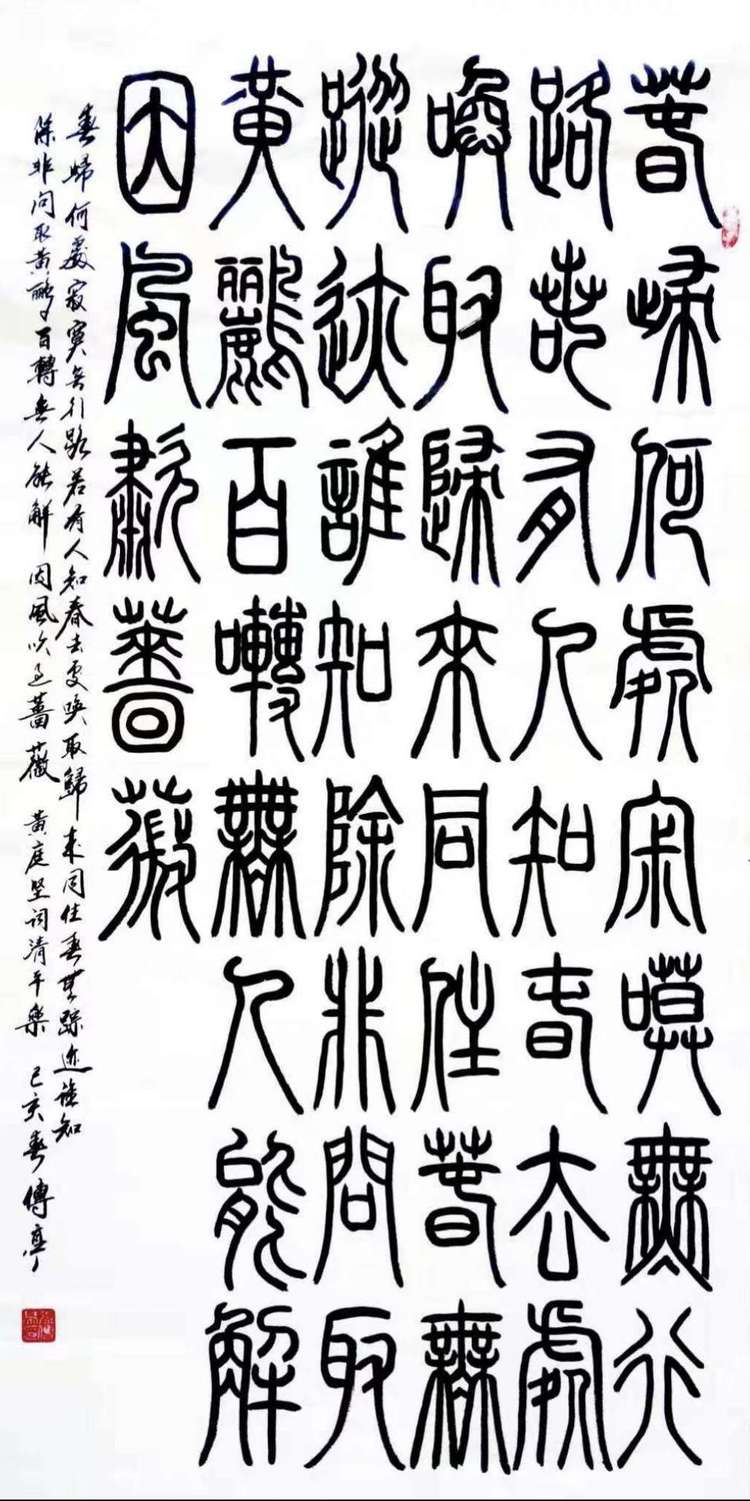 春歸何處寂寞無行
路若有人知春去處
喚取歸來同住春無
蹤迹誰知除非問取
黃鸝百囀無人能解
因風歗薔薇
春歸何處寂寞無行路若有人知春去處喚取歸來同住春無蹤迹誰知
除非問取黃鸝百轉無人能解因風吹過薔薇 黃庭坚词清平樂 己亥春